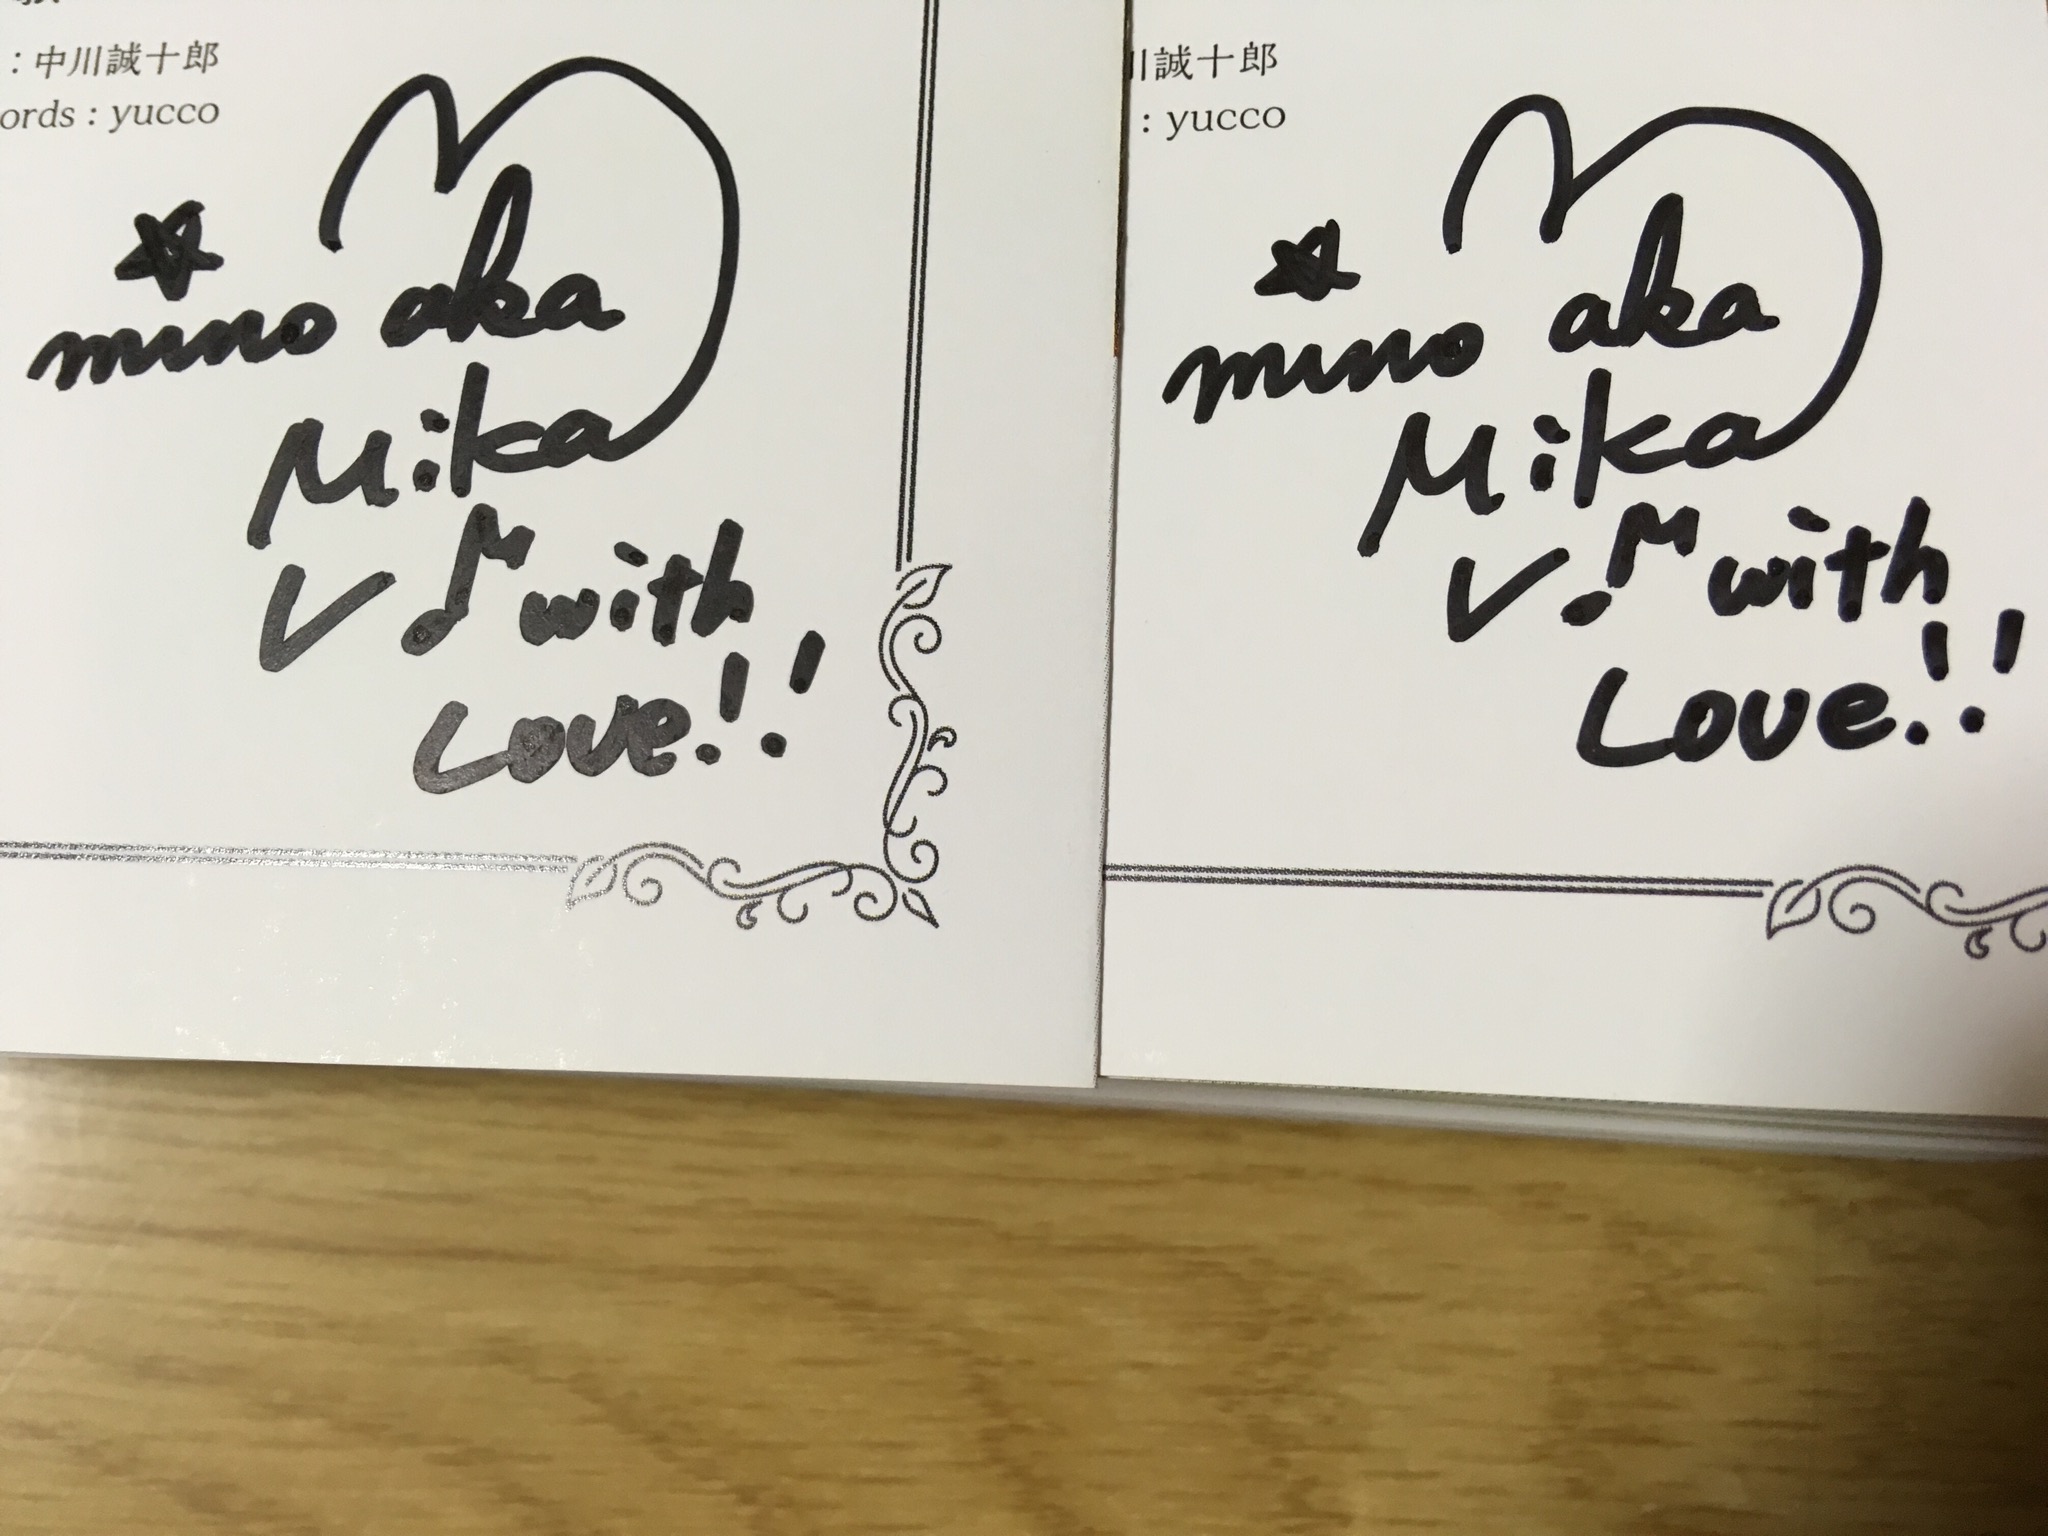 : 中川誠十郎
ords : yucco
mino aka
Mika
with
Love!!
川誠十郎
: yucco
mino aka
Mika
with
Love!!